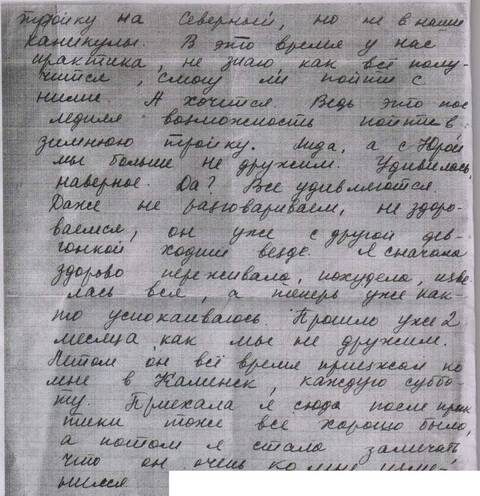 тройку на Северный, но не в наши
каникулы. В это время у нас
практика, не знаю, как всё полу-
чится, смогу ли пойти с
ними. А хочется. Ведь это пос
ледняя возможность пойти в
зимнюю тройку. Лида, а с Юрой
мы больше не дружим. Удивилась,
наверное. Да? Все удивляются.
Даже не разговариваем, не здоро-
ваемся, он уже с другой дев-
чонкой ходит везде. Я сначала
здорово переживала, похудела, изве
лась вся, а теперь уже как-
то успокаиваюсь. Прошло уже 2
месяца, как мы не дружим.
Летом он всё время приезжал ко
мне в Каменск, каждую суббо-
ту. Приехала я сюда после прак
тики тоже всё хорошо было,
а потом я стала замечать,
что он очень ко мне изме-
нился